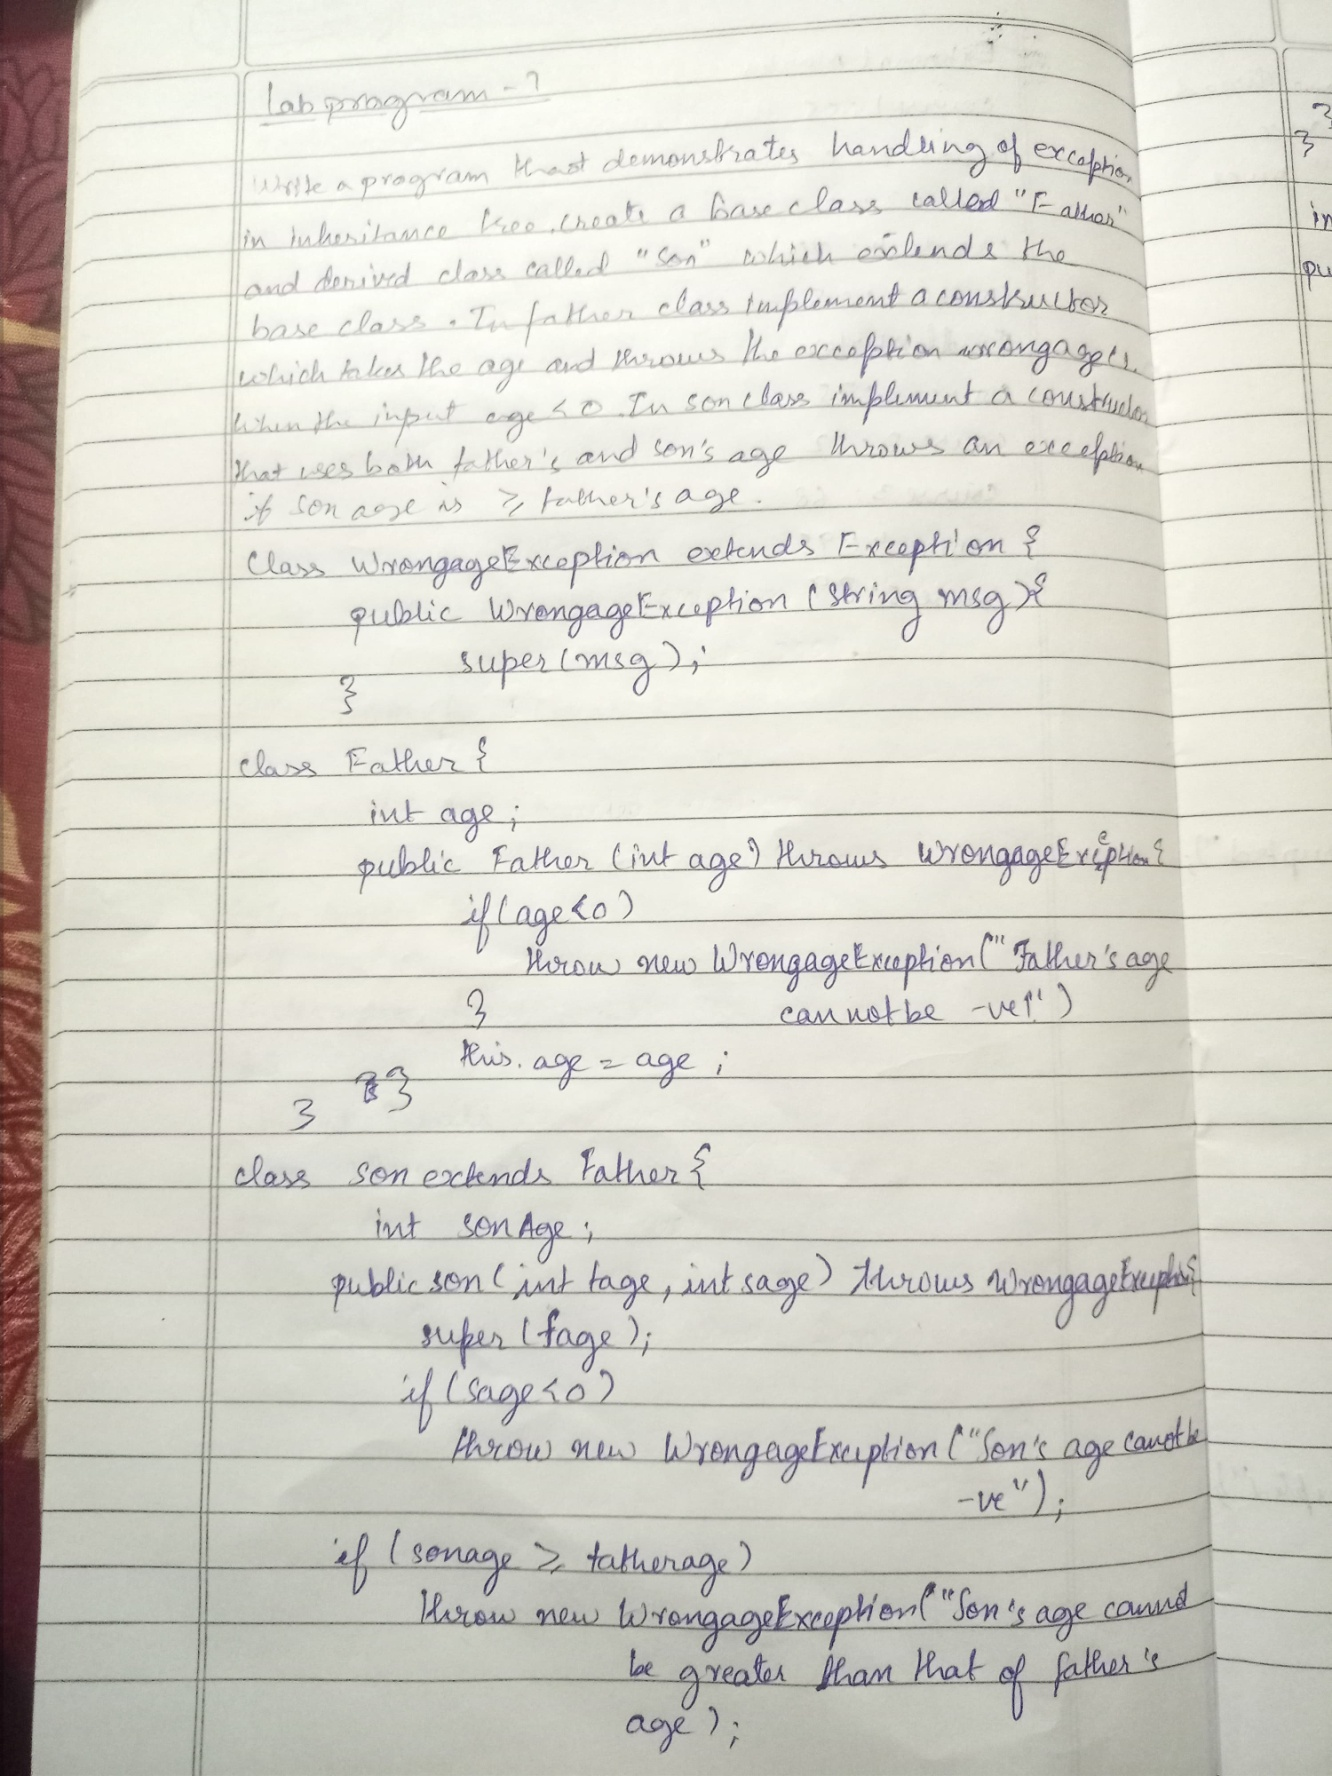 Lab program - 7
Write a program that demonstrates handling of exception
in inheritance tree. create a base class called "Father"
and derived class called "Son" which extends the
base class. In father class implement a constructor
which takes the age and throws the exception wrongage().
When the input age < 0. In son class implement a constructor
that uses both father's and son's age throws an exception
if son age is ≥ father's age.
Class WrongageException extends Exception {
public WrongageException (String msg){
super(msg);
}
class Father {
int age;
public Father (int age) throws WrongageException{
if(age<0)
throw new WrongageException("Father's age
} cannot be -ve!")
this.age = age;
}
}
class son extends Father {
int sonAge;
public son(int fage, int sage) throws WrongageException{
super (fage);
if (sage<0)
throw new WrongageException ("Son's age canotbe
-ve");
if (sonage ≥ fatherage)
throw new WrongageException("Son's age cannot
be greater than that of father's
age);
}
}
in
pu